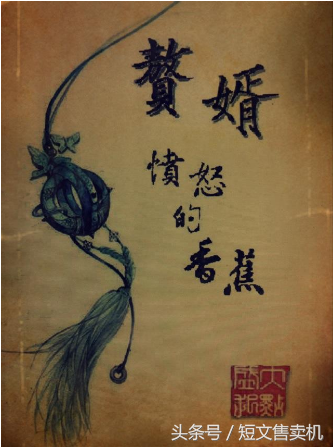 贅婿
憤怒的香蕉
头条号 / 短文售卖机